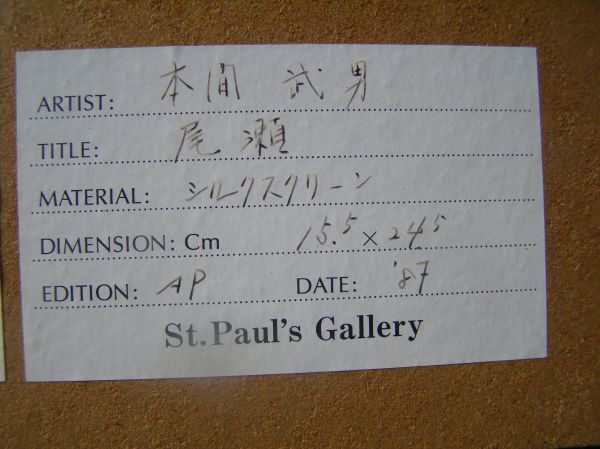 ARTIST: 本間 武男
TITLE: 尾瀬
MATERIAL: シルクスクリーン
DIMENSION: Cm 15.5 × 24.5
EDITION: AP DATE: '87
St.Paul's Gallery